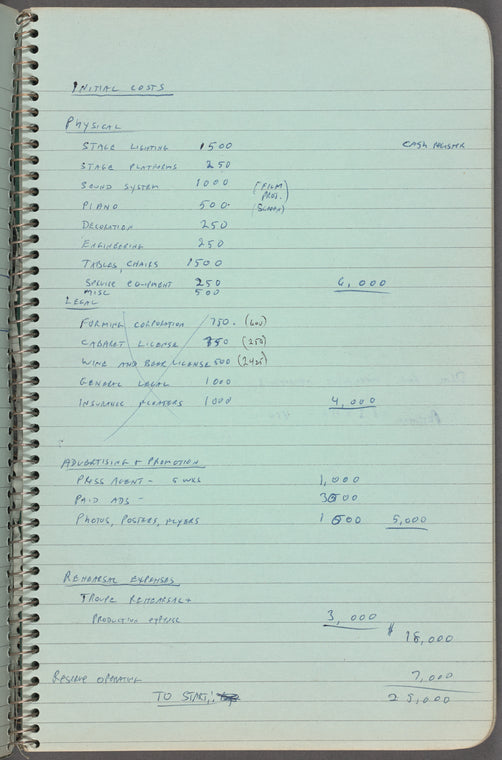 INITIAL COSTS
Physical
STAGE LIGHTING 1500 CASH REGISTER
STAGE PLATFORMS 250
SOUND SYSTEM 1000 (FILM
PROJ.)
PIANO 500 (SCREEN)
DECORATION 250
ENGINEERING 250
TABLES, CHAIRS 1500
SERVICE EQUIPMENT 250 6,000
MISC 500
LEGAL
FORMING CORPORATION 750. (600)
CABARET LICENSE 750 (250)
WINE AND BEER LICENSE 500 (2425)
GENERAL LEGAL 1000
INSURANCE FLOATERS 1000 4,000
ADVERTISING + PROMOTION
PRESS AGENT - 5 WKS 1,000
PAID ADS - 3500
PHOTOS, POSTERS, FLYERS 1500 5,000
REHEARSAL EXPENSES
TROUPE REHEARSAL +
PRODUCTION EXPENSE 3,000
$ 18,000
RESERVE OPERATING 7,000
TO START: 25,000